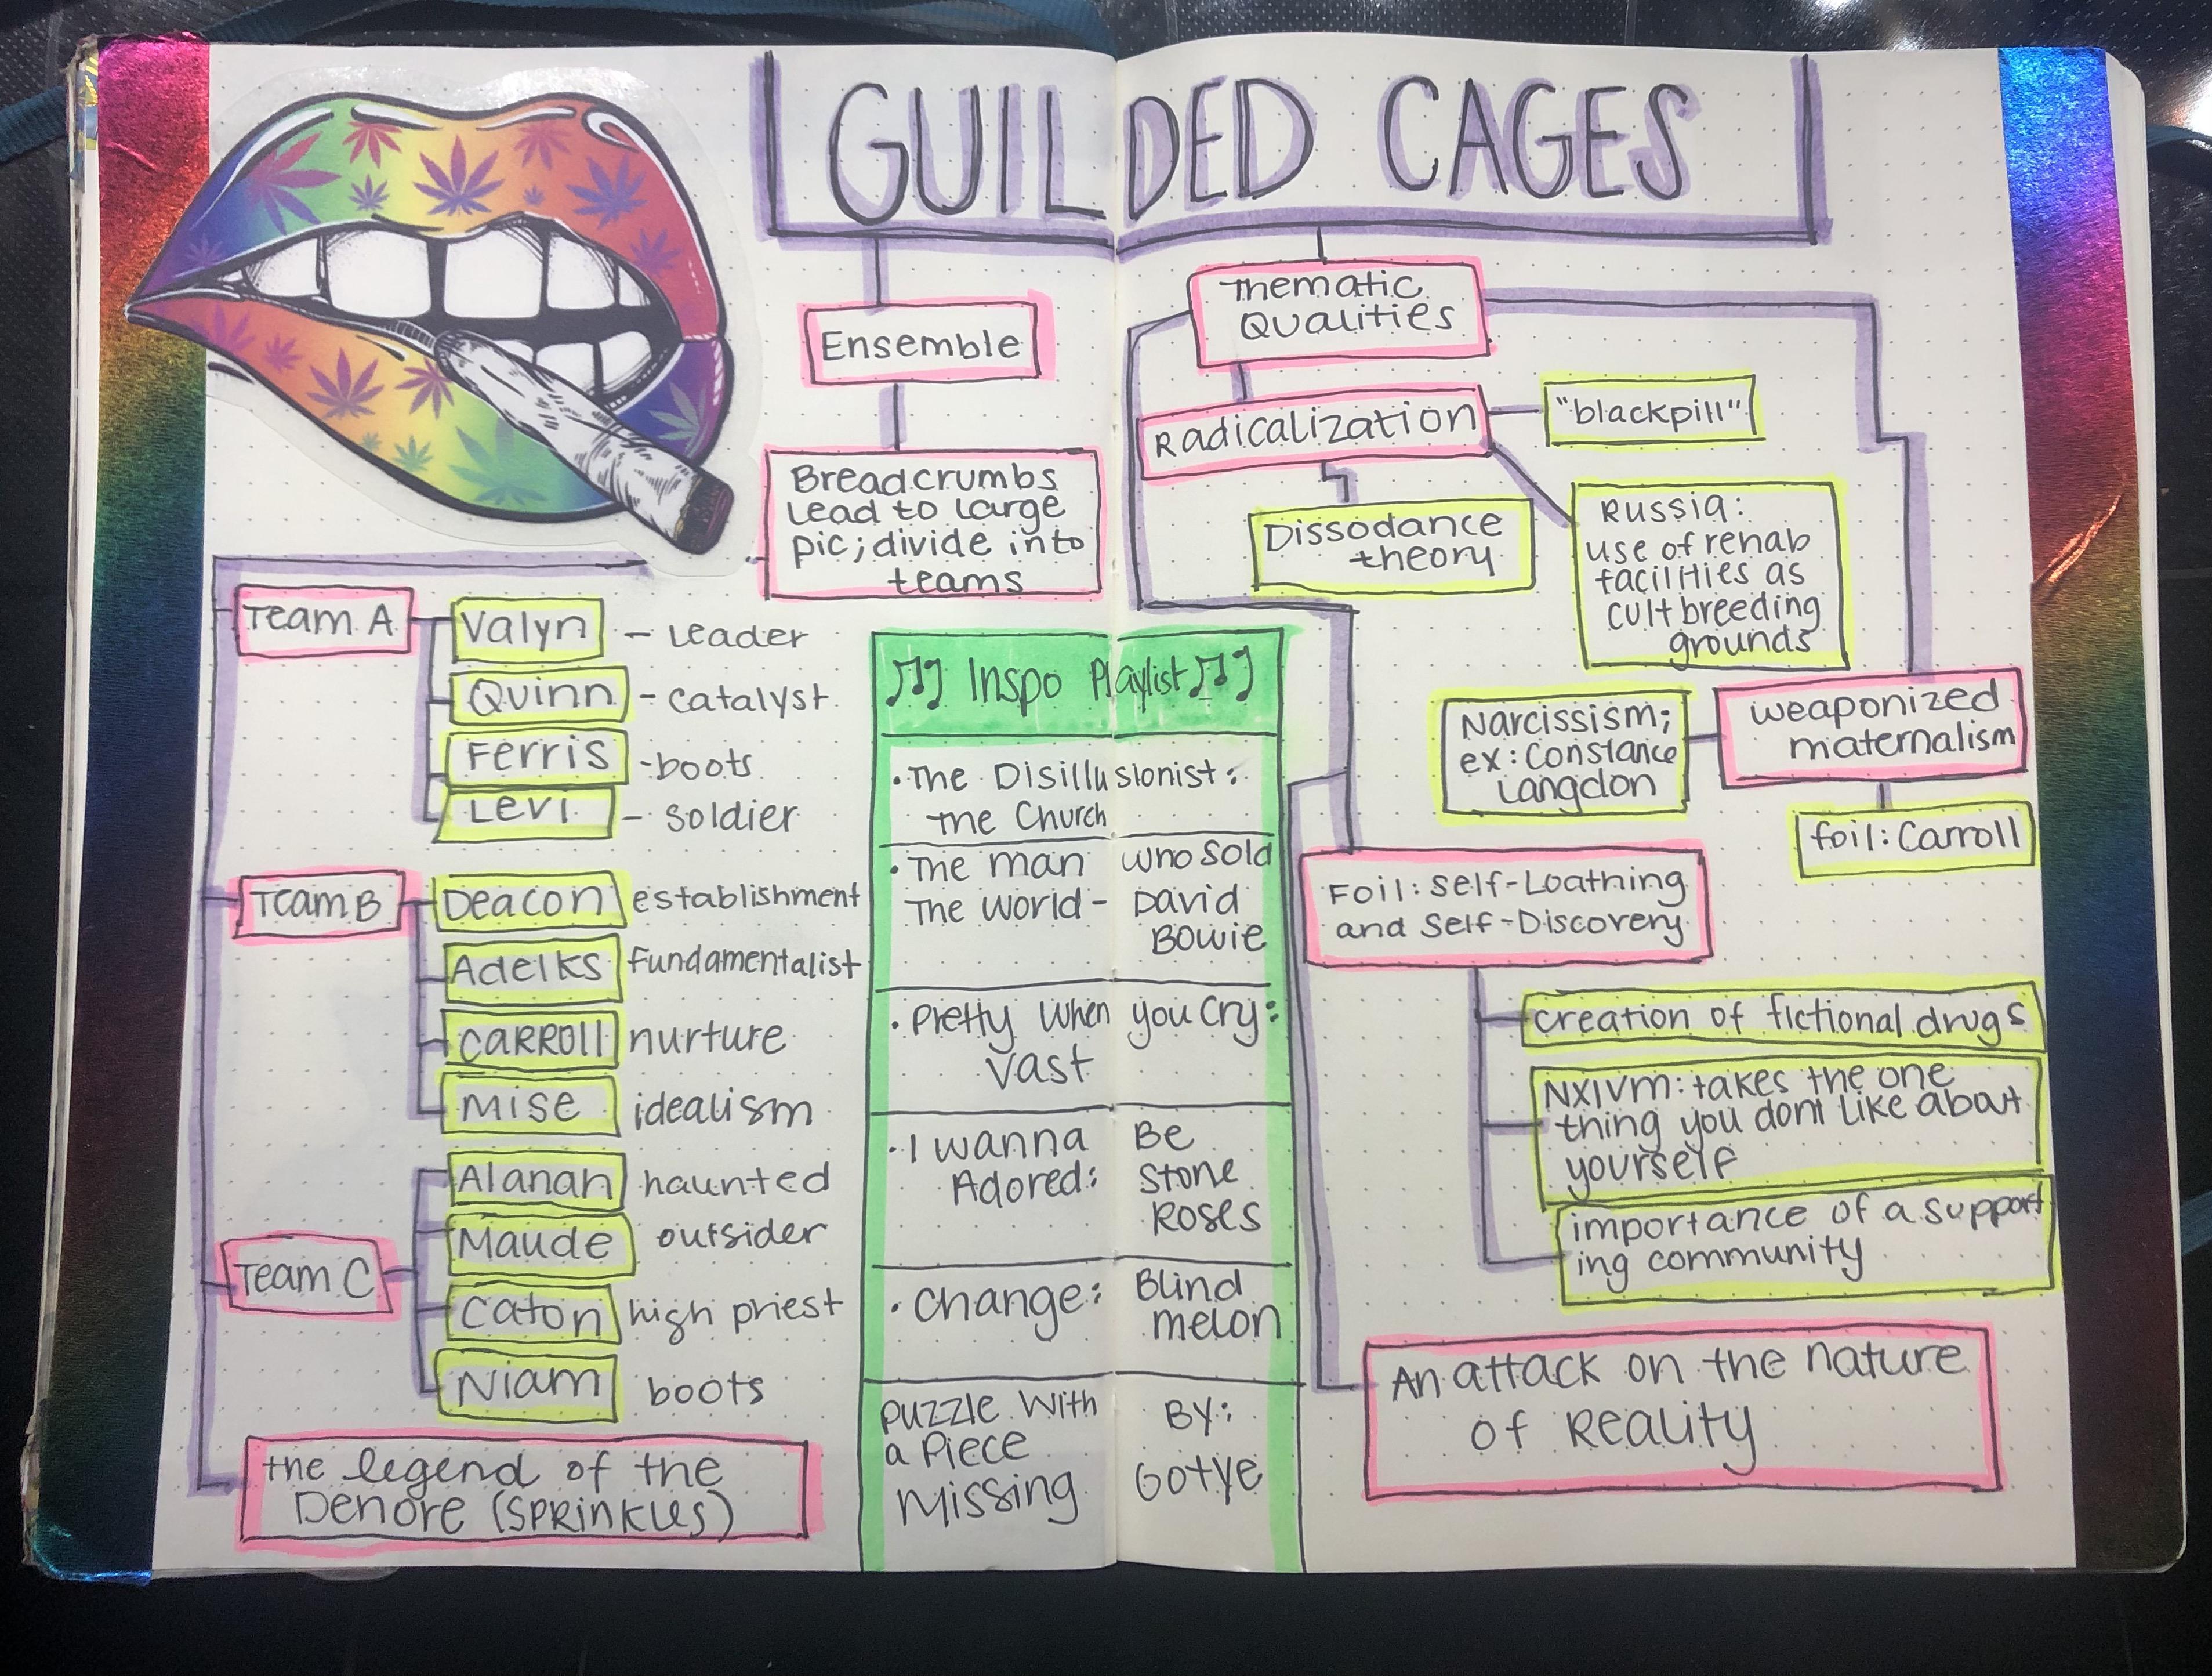 GUILDED CAGES
Ensemble
Breadcrumbs
Lead to large
pic; divide into
teams
Team A
Valyn - Leader
Quinn - catalyst
Ferris - boots
Levi - soldier
Team B
Deacon establishment
Adelks fundamentalist
CARROLL nurture
Mise idealism
Team C
Alanah haunted
Maude outsider
Caton high priest
Niam boots
the legend of the
Denore (SPRINKLES)
Inspo Playlist
• The Disillusionist:
The Church
• The man who sold
The world - David
Bowie
• Pretty When you Cry:
Vast
• I wanna Be
Adored: Stone
Roses
• Change: Blind
melon
Puzzle With By:
a Piece
Missing Gotye
Thematic
Qualities
Radicalization
"blackpill"
Dissodance
theory
Russia:
use of rehab
facilities as
cult breeding
grounds
weaponized
maternalism
Narcissism;
ex: Constance
Langdon
foil: Carroll
Foil: Self-Loathing
and Self-Discovery
creation of fictional drugs
NXIVM: takes the one
thing you dont like about
yourself
importance of a support
ing community
An attack on the nature
of Reality